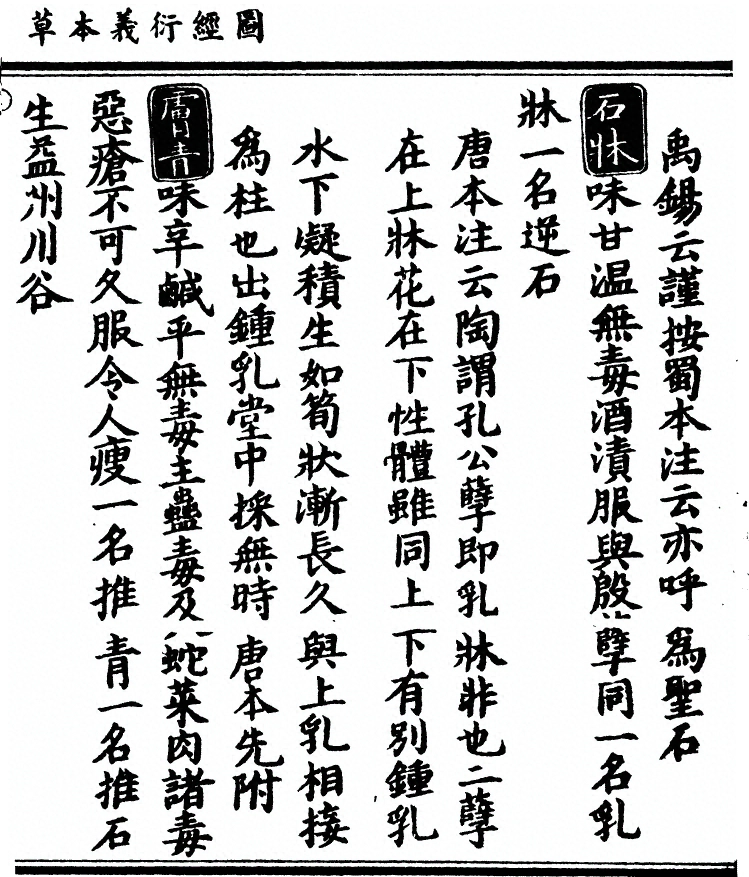 圖經衍義本草
禹錫云謹按蜀本注云亦呼爲聖石
石牀味甘温無毒酒漬服與殷孽同一名乳
牀一名逆石
唐本注云陶謂孔公孽即乳牀非也二孽
在上牀花在下性體雖同上下有别鍾乳
水下凝積生如筍狀漸長久與上乳相接
爲柱也出鍾乳堂中採無時 唐本先附
膚青味辛鹹平無毒主蠱毒及蛇菜肉諸毒
惡瘡不可久服令人瘦一名推青一名推石
生益州川谷